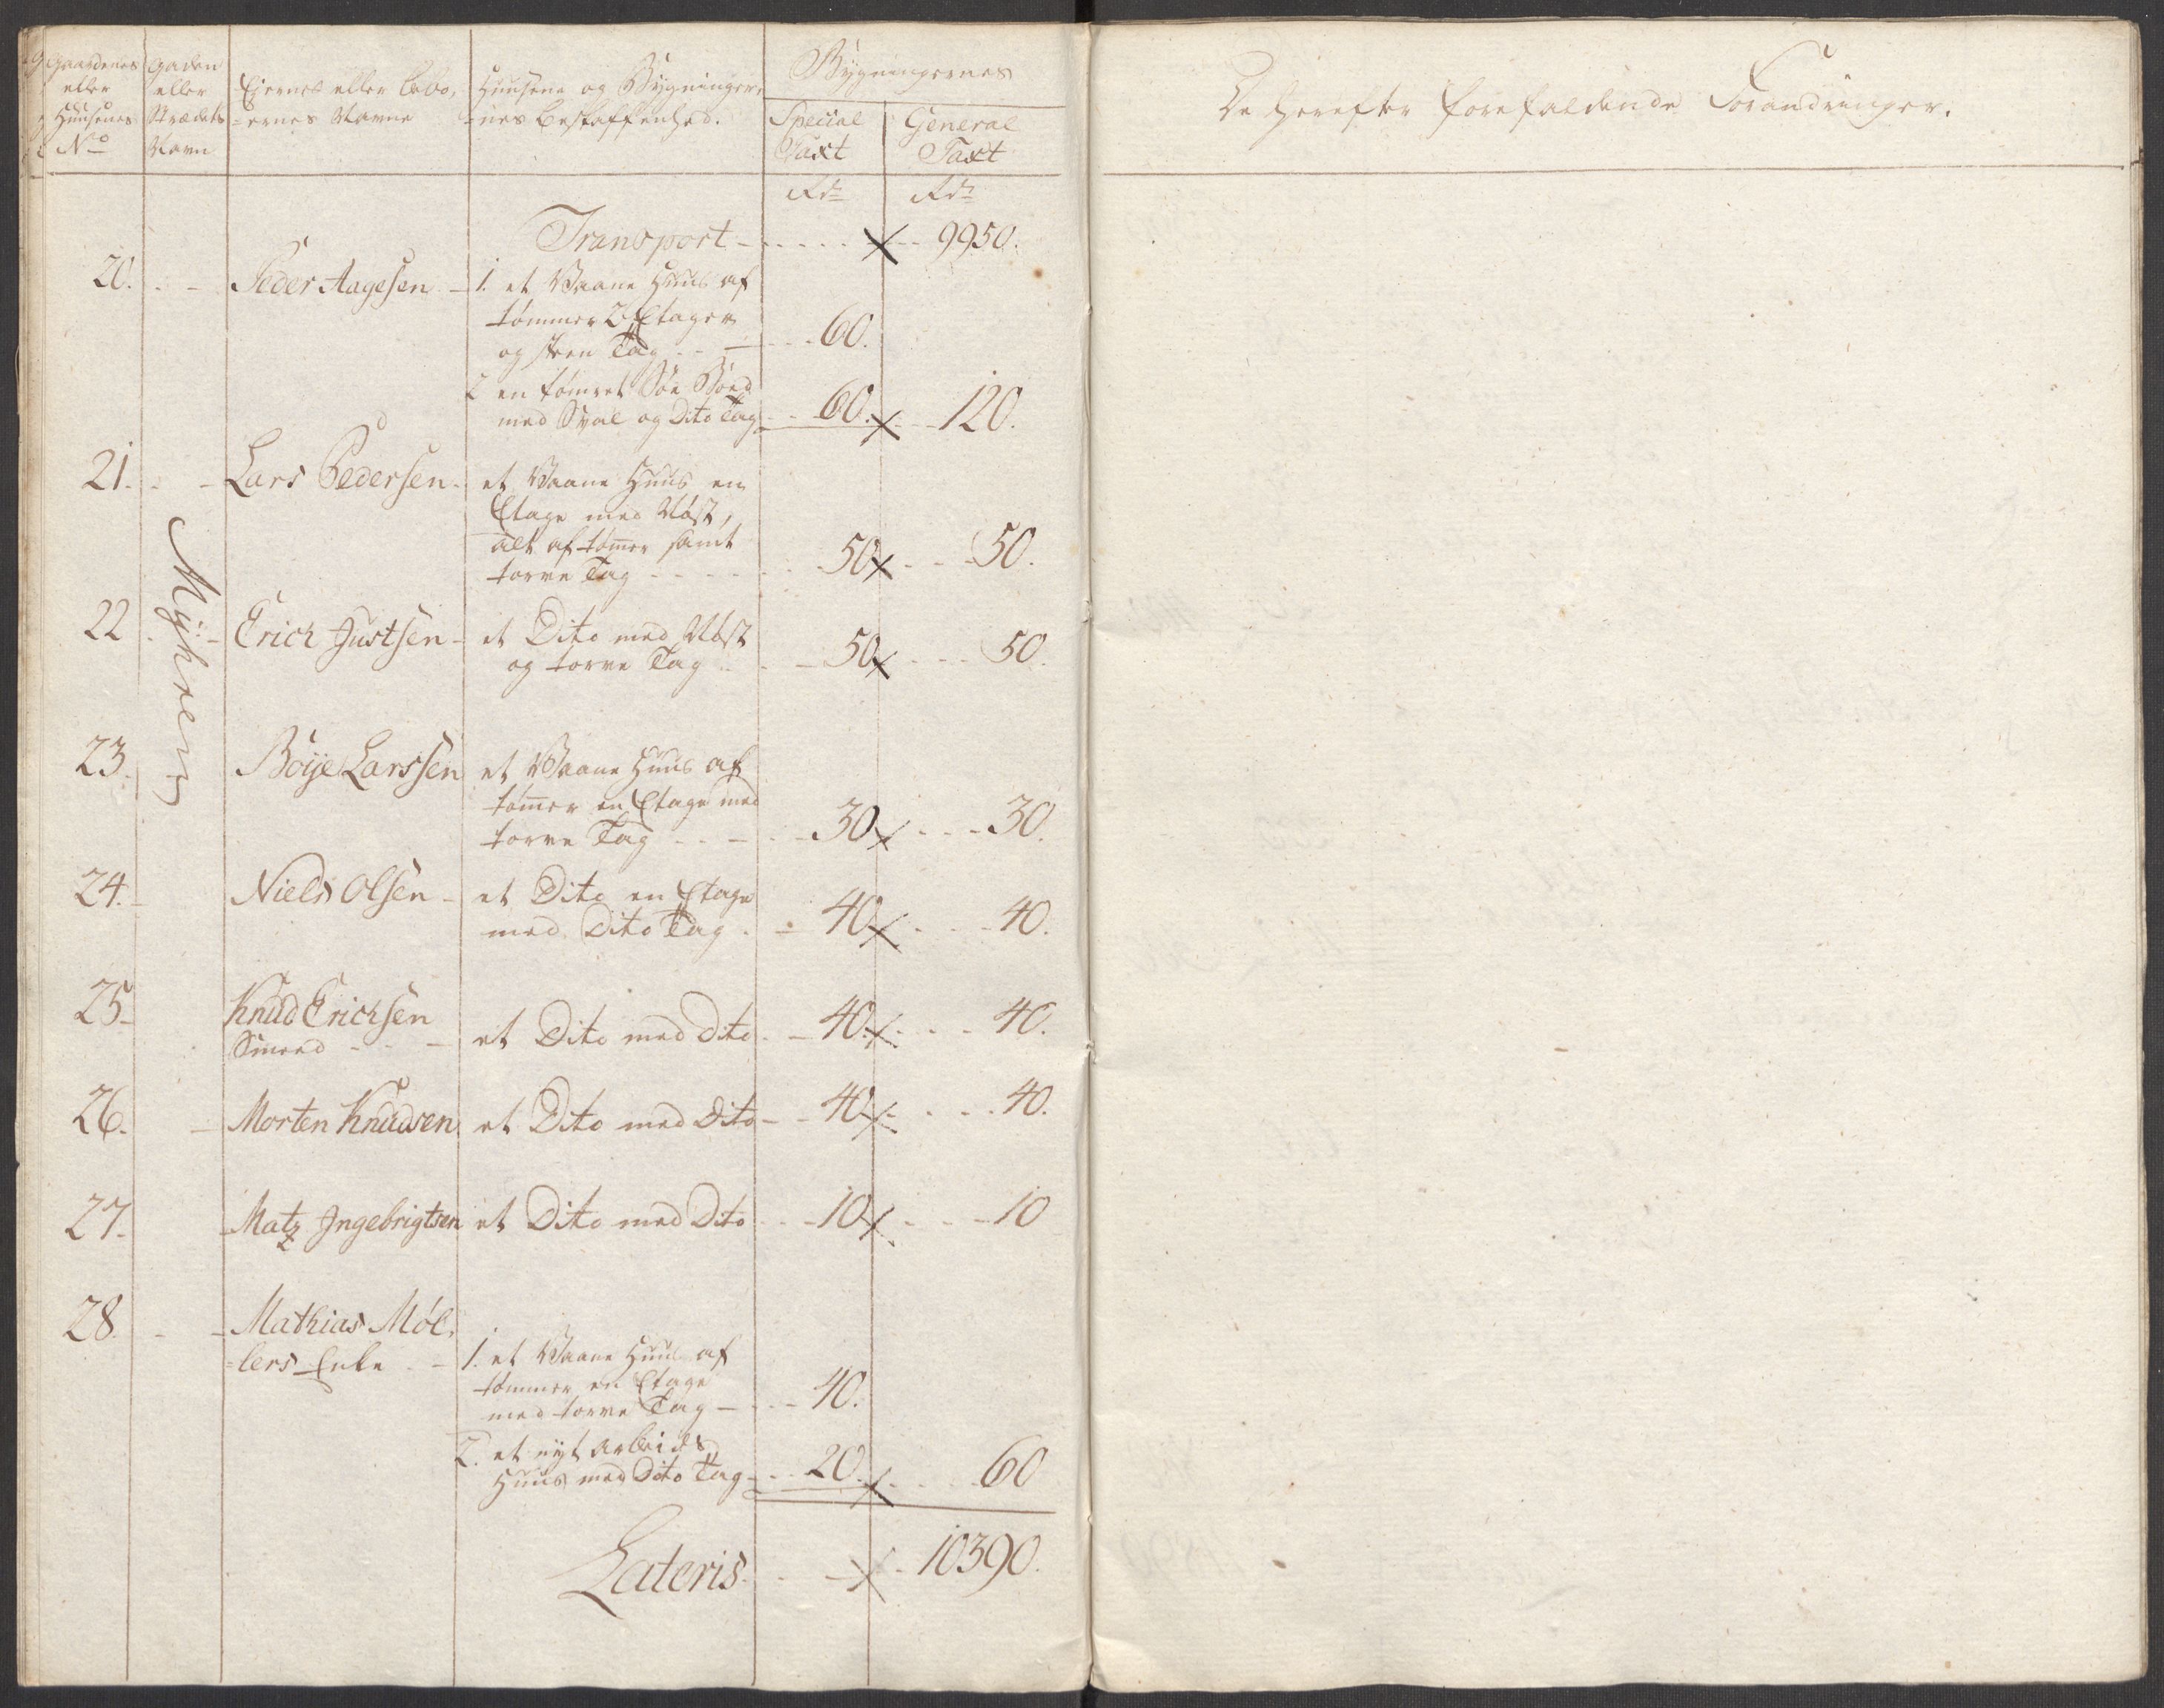 Gaardenes
eller
Huusenes
No
Gaden
eller
Strædets
Navn
Eiernes eller bebo,
=ernes Navne
Huusene og Bygninger,
=nes beskaffenhed.
Bygningernes
Special
Taxt
General
Taxt
Rdr
Rdr
Transport - - - - - 9950.
20. - - Peder Aagesen - 1. et Vaane Huus af
tømmer 2 Etager
og steen Tag - - - - - 60.
2 en tømret Søe Boed
med Sval og Dito Tag - - 60. - - 120.
21. - - Lars Pedersen - et Vaane Huus en
Etage med Nøst,
alt af tømer samt
torve Tag - - - - 50 - - - 50.
Myhren
22 - - Erich Justsen - et Dito med Nøst
og torve Tag - - 50 - - - 50.
23. Böÿe Larssen et Vaane Huus af
tømer en Etage med
torve Tag - - - - 30 - - - 30.
24. - Niels Olsen - et Dito en Etage
med Dito Tag - - 40 - - - 40.
25 - Knud Erichsen
Smeed - - - et Dito med Dito - - 40 - - - 40.
26. - Morten Knudsen et Dito med Dito - - 40 - - - 40.
27. - Matz Ingebrigtsen et Dito med Dito - - 10 - - - 10
28. - - Mathias Møl,
=lers Enke - - 1. et Vaane Huus af
tømmer en Etage
med torve Tag - - - 40.
2. et nyt Arbeids
Huus med Dito Tag - - 20. - - - 60
Lateris - - - 10390.
De herefter forefaldende Forandringer.